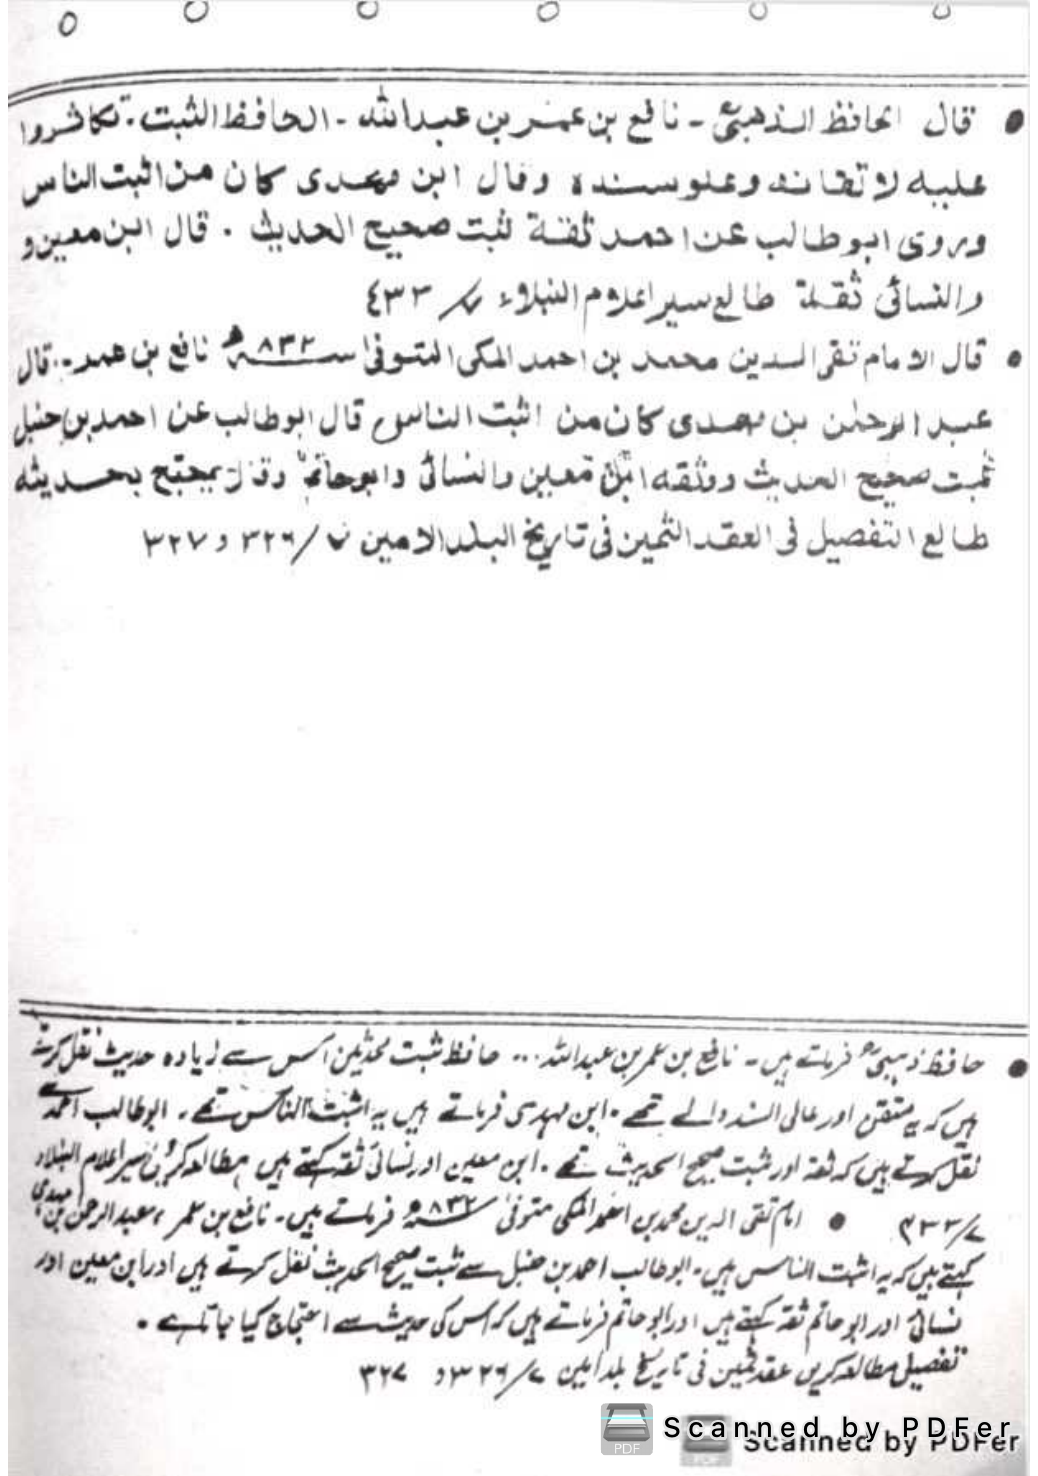 قال الحافظ الذهبیؒ ـ نافع بن عمر بن عبدالله ـ الحافظ الثبت. تکاثروا
علیه لاتقانه وعلو سنده وقال ابن مهدی کان من اثبت الناس
وروی ابو طالب عن احمد ثقة ثبت صحیح الحدیث . قال ابن معین و
والنسائی ثقة طالع سیر اعلام النبلاء ۷/ ٤۳۳
قال الامام تقی الدین محمد بن احمد المکی المتوفیٰ سنه ۸۳۲ھ نافع بن عمر ـ قال
عبد الرحمٰن بن مهدی کان من اثبت الناس قال ابو طالب عن احمد بن حنبل
ثبت صحیح الحدیث وثقه ابن معین والنسائی وابو حاتم وقال یحتج بحدیثه
طالع التفصیل فی العقد الثمین فی تاریخ البلد الامین ۷/ ۳۲٦ و ۳۲۷
حافظ ذہبیؒ فرماتے ہیں ۔ نافع بن عمر بن عبداللہ ... حافظ ثبت محدثین اس سے زیادہ حدیث نقل کرتے
ہیں کہ یہ متقن اور عالی السند والے تھے ۔ ابن مہدی فرماتے ہیں یہ اثبت الناس تھے ۔ ابوطالب احمد سے
نقل کرتے ہیں کہ ثقہ اور ثبت صحیح الحدیث تھے ۔ ابن معین اور نسائی ثقہ کہتے ہیں مطالعہ کریں سیر اعلام النبلاء
۷/۴۳۳ ● امام تقی الدین محمد بن احمد المکی متوفیٰ سنہ ۸۳۲ھ فرماتے ہیں ۔ نافع بن عمر ، عبدالرحمٰن بن مہدی
کہتے ہیں کہ یہ اثبت الناس ہیں ۔ ابوطالب احمد بن حنبل سے ثبت صحیح الحدیث نقل کرتے ہیں اور ابن معین اور
نسائی اور ابو حاتم ثقہ کہتے ہیں اور ابو حاتم فرماتے ہیں کہ اس کی حدیث سے احتجاج کیا جاتا ہے ۔
تفصیل مطالعہ کریں عقد ثمین فی تاریخ بلد امین ۷/ ۳۲۶ و ۳۲۷
Scanned by PDFer
Scanned by PDFer